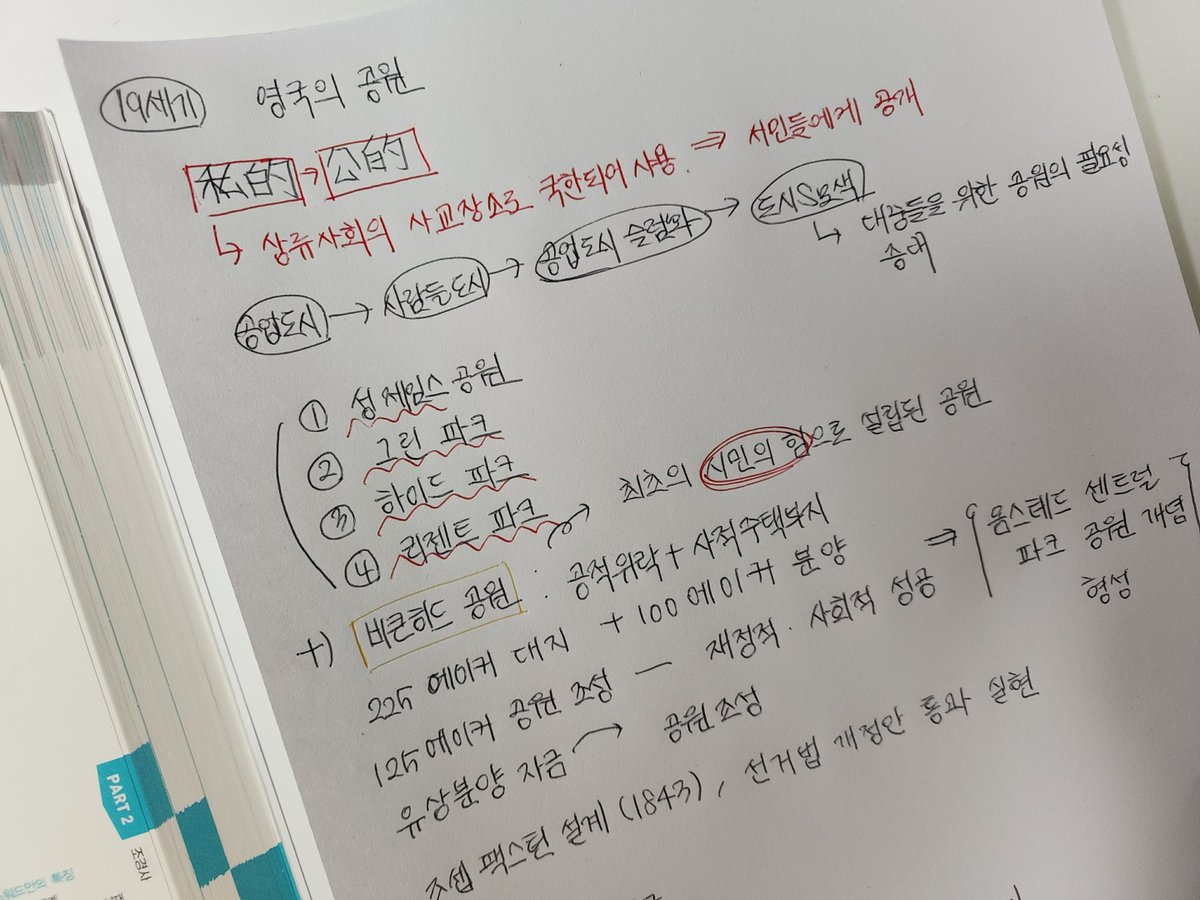 19세기 영국의 공원
私的 → 公的
↳ 상류사회의 사교장소로 국한되어 사용. ⇒ 시민들에게 공개
공업도시 → 사람들도시 → 공업도시 슬럼화 → 도시S모색
↳ 대중들을 위한 공원의 필요성
증대
① 성 제임스 공원
② 그린 파크
③ 하이드 파크
④ 리젠트 파크
최초의 시민의 힘으로 설립된 공원
+) 비큰히드 공원 : 공적위락 + 사적주택부지
225 에이커 대지 + 100 에이커 분양
125에이커 공원 조성 — 재정적·사회적 성공
⇒ 옴스테드 센트럴
파크 공원 개념
형성
유상분양 자금 → 공원조성
조셉 팩스턴 설계 (1843), 선거법 개정안 통과 실현
PART 2
조경사